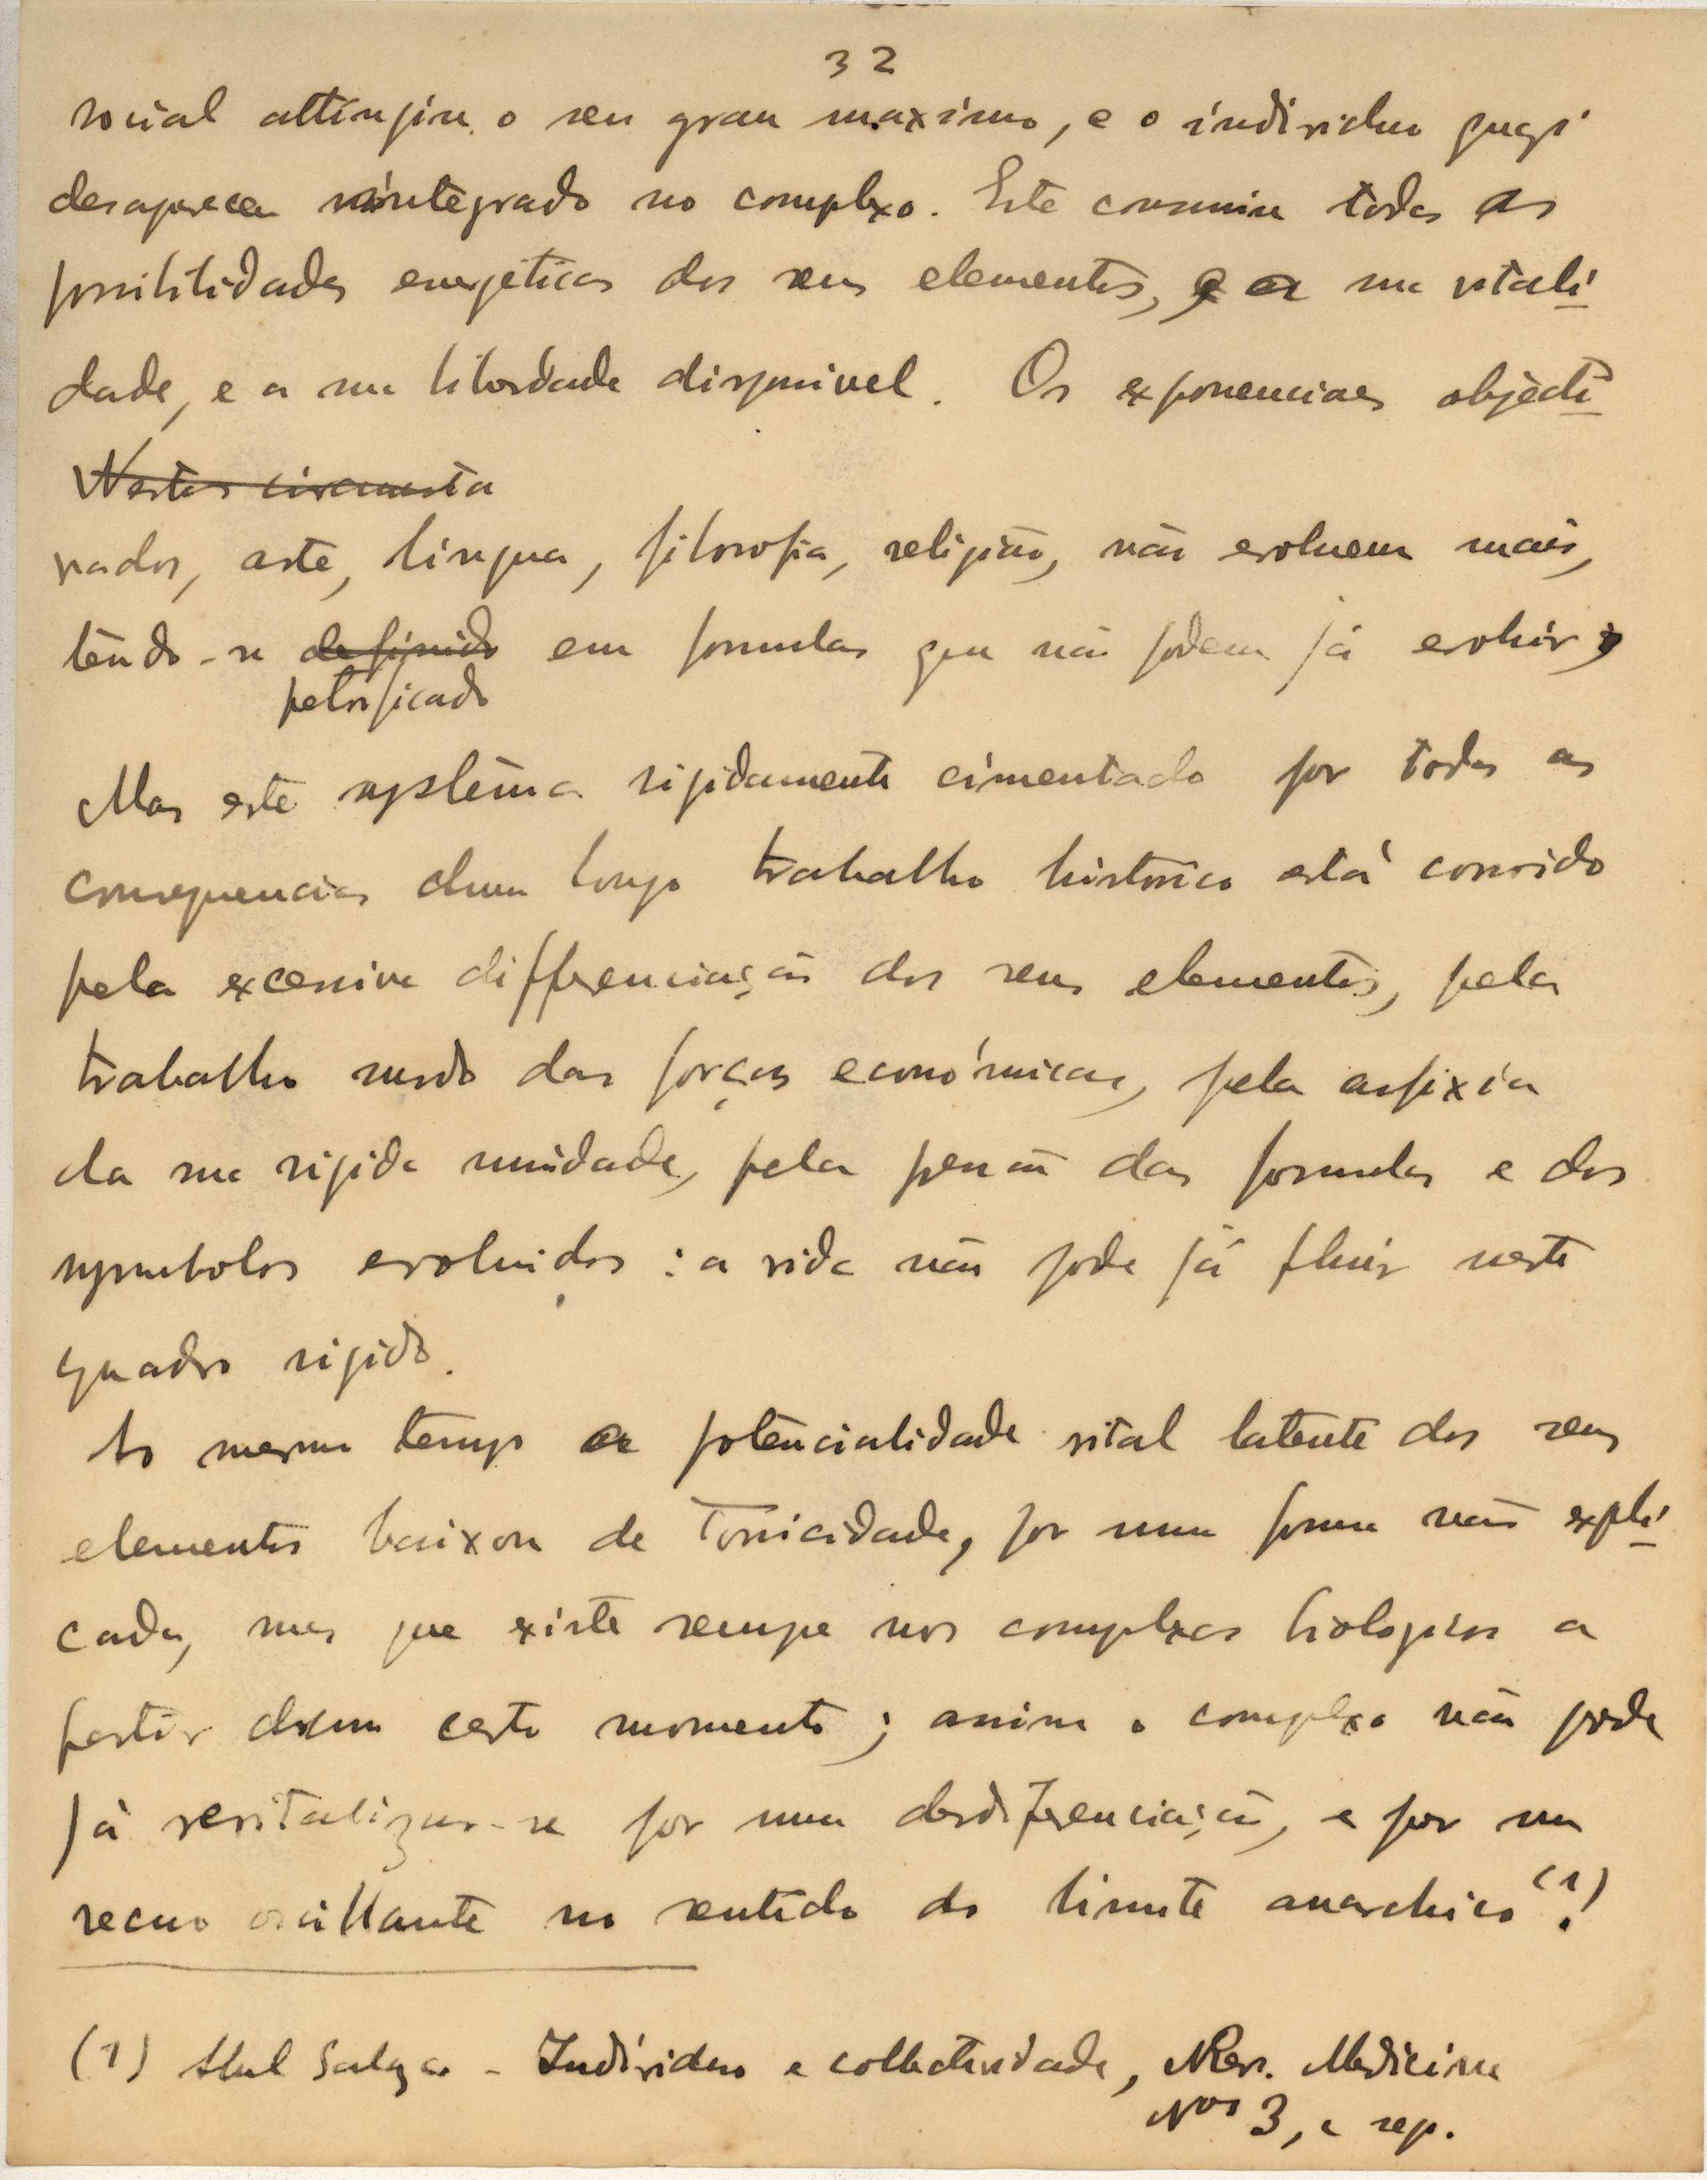 32
social attingiu o seu grau maximo, e o individuo quasi
desapareceu integrado no complexo. Este consumiu todas as
possibilidades energéticas dos seus elementos, e a sua vitali-
dade, e a sua liberdade disponivel. Os exponenciaes objecti-
Nestas circumsta
vados, arte, lingua, filosofia, religião, não evoluem mais,
tendo-se definido em formulas que não podem já evoluir;
petrificado
Mas este systema rigidamente cimentado por todas as
consequencias dum longo trabalho historico está corroido
pela excessiva differenciação dos seus elementos, pelo
trabalho surdo das forças económicas, pela asfixia
da sua rigida unidade, pela pressão das formulas e dos
symbolos evoluidos: a vida não pode já fluir neste
quadro rigido.
Ao mesmo tempo a potencialidade vital latente dos seus
elementos baixou de tonicidade, por uma forma não expli-
cada, mas que existe sempre nos complexos biologicos a
partir dum certo momento; assim o complexo não pode
já revitalizar-se por uma desdiferenciação, e por um
recuo oscillante no sentido do limite anarchico (1).
(1) Abel Salazar - Individuo e collectividade, Rev. Medicina
Nos 3, e seg.